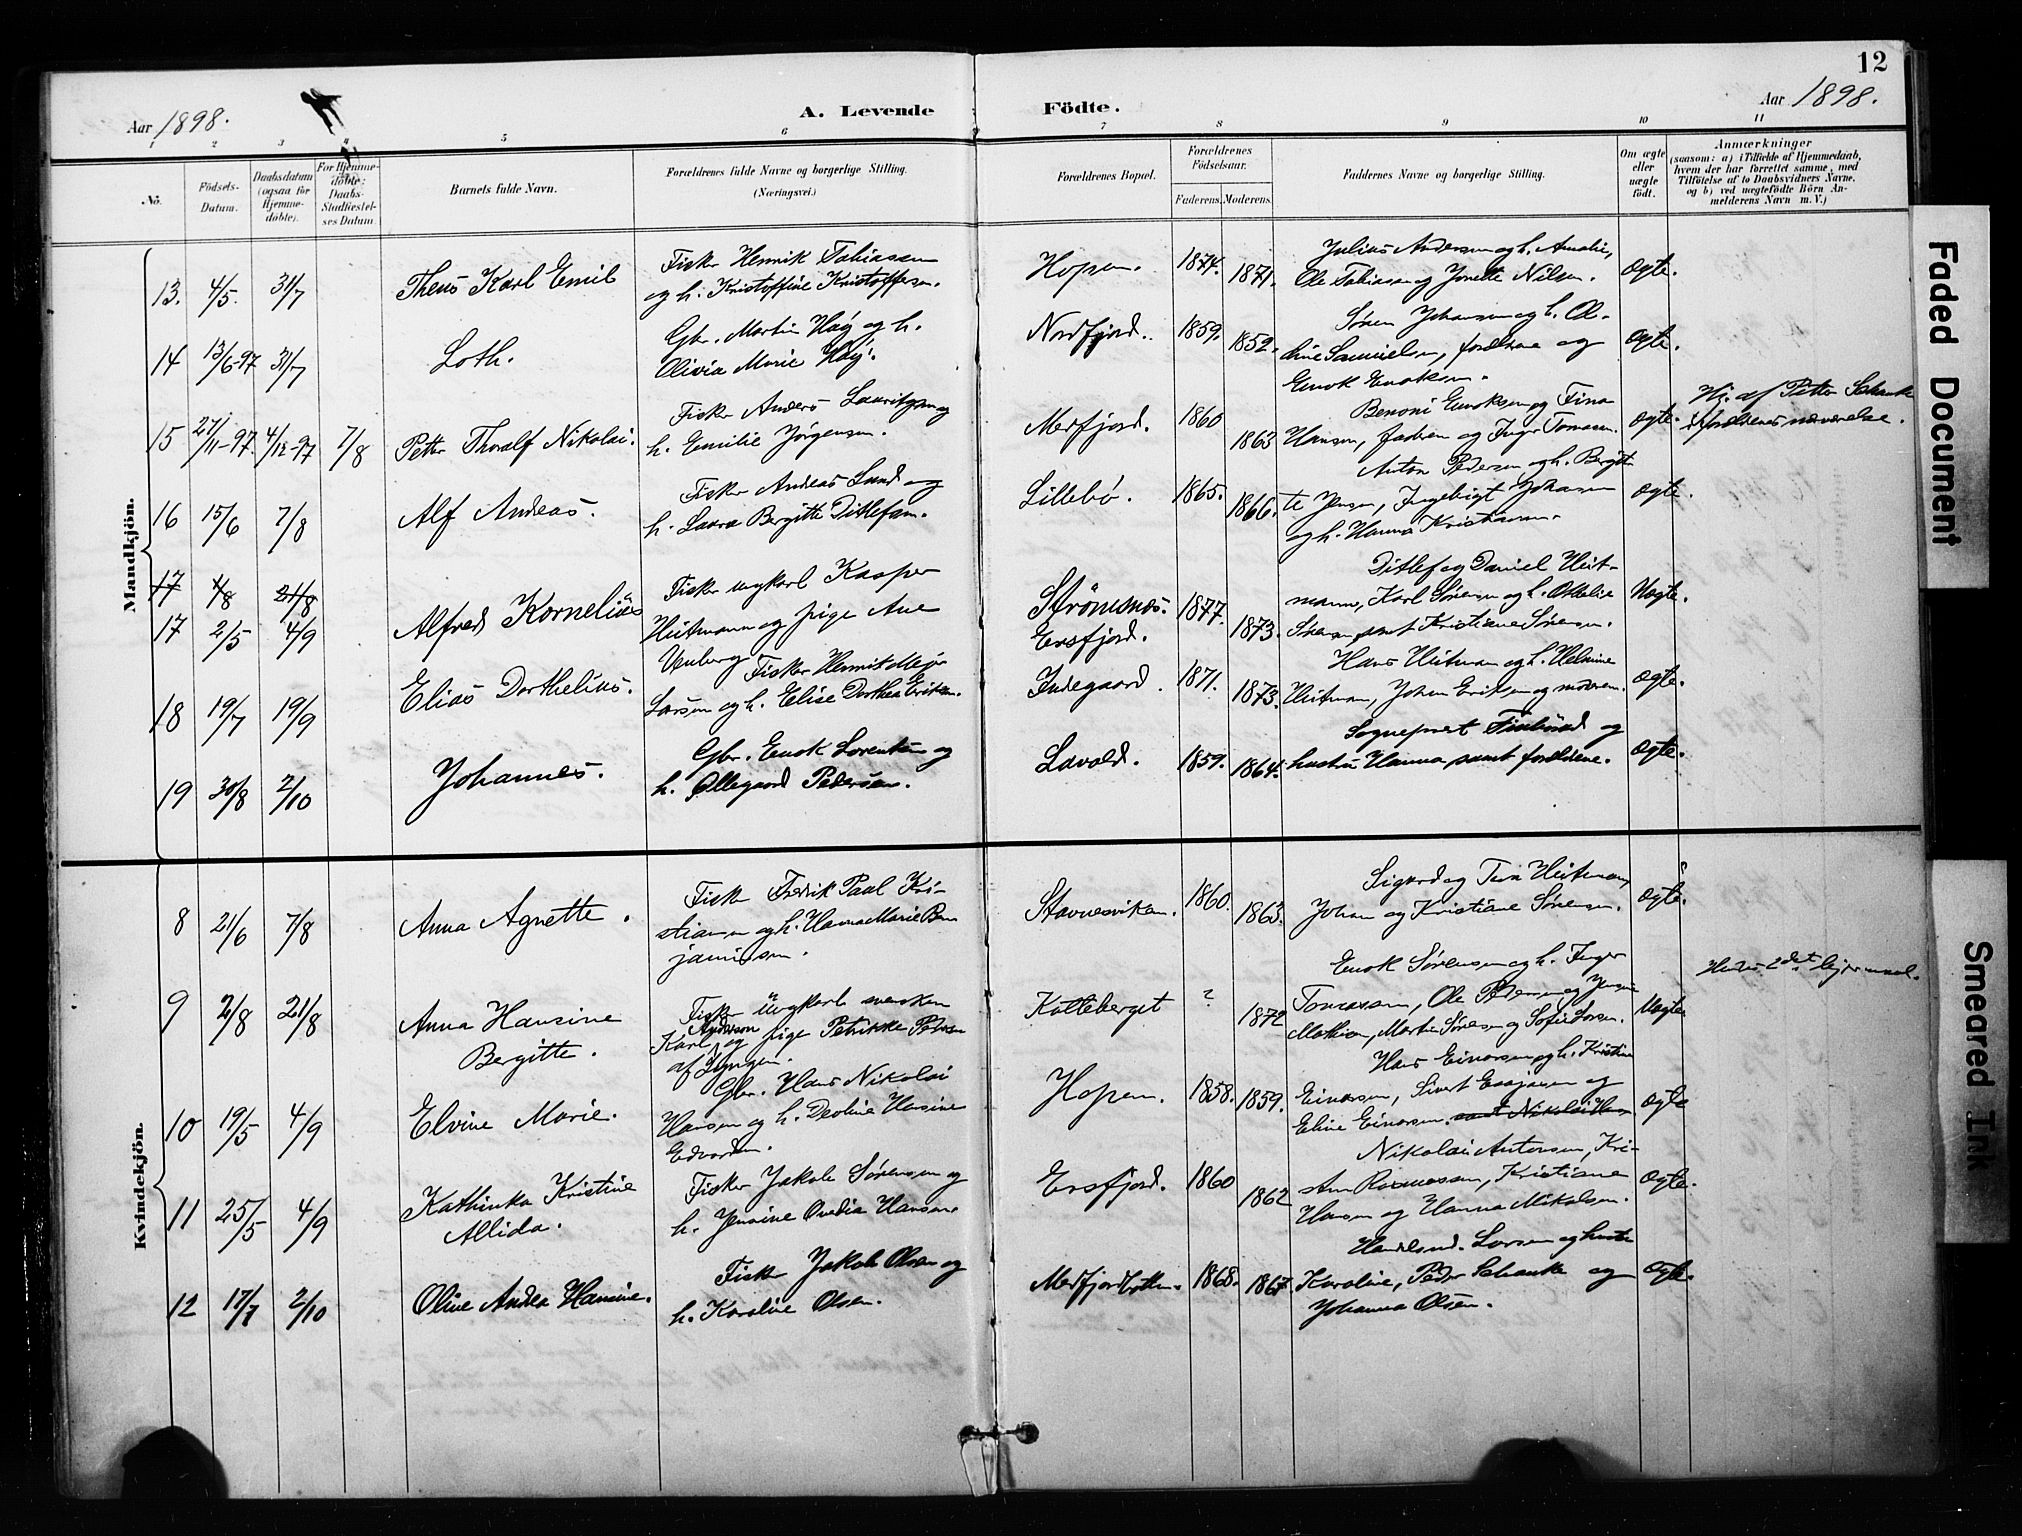 12
Aar 1898.
A. Levende
Födte.
Aar 1898.
1 2 3 4 5 6 7 8 9 10 11
No.
Födsels-Datum.
Daabsdatum (ogsaa for Hjemme-döbte).
For Hjemme-döbte: Daabs-Stadfæstelses Datum
Barnets fulde Navn.
Forældrenes fulde Navne og borgerlige Stilling.
(Næringsvei.)
Forældrenes Bopæl.
Forældrenes Födselsaar.
Faderens. Moderens.
Faddernes Navne og borgerlige Stilling.
Om ægte eller uægte födt.
Anmærkninger
(saasom: a) i Tilfælde af Hjemmedaab,
hvem der har forrettet samme, med
Tilföielse af to Daabsvidners Navne,
og b) ved uegtefödte Börn An-
melderens Navn m. V.)
Mandkjön.
13. 4/5. 31/7 Theus Karl Emil
Fisker Henrik Tobiassen
og h. Kristoffine Kristoffersen.
Hopen. 1874. 1871.
Julius Andersen og h. Amalie,
Ole Tobiassen og Jonette Nilsen.
Ægte.
14 13/6-97 31/7 Loth.
Gbr. Martin Høy og h.
Olivia Marie Høy.
Nordfjord. 1859. 1852.
Søren Johansen og h. Ol-
ine Samuelsen, forældrene og
Enok Enoksen.
Ægte.
15 27/11-97. 4/12-97 7/8 Petter Thoralf Nikolai.
Fisker Anders Lauritzen og
h. Emilie Jörgensen.
Mefjord. 1860 1863
Benoni Enoksen og Fina
Hansen, faderen og Inger Tomasen.
Ægte.
Hj. af Petter Schanke
i forældrenes nærværelse.
16 15/6 7/8 Alf Andreas.
Fisker Andreas Lund og
h. Laura Bergitte Ditlefsen.
Lillebö. 1865. 1866.
Anton Pedersen og h. Bergit-
te Jensen, Ingebrigt Johansen
og h. Hanna Kristiansen.
Ægte.
17 4/8 21/8
17 2/5 4/9 Alfred Kornelius
Fisker ungkarl Kasper
Heitmann og pige Ane
Strömsnes. Ersfjord. 1877. 1873.
Ditlef og Daniel Heit-
mann, Karl Sörensen og h. Ottilie
Sörensen samt Kristiane Sörensen.
Uægte.
18 19/7 19/9 Elias Dorthelius.
Fisker Henrik Mejer
Larsen og h. Elise Dorthea Eriksen.
Indegaard. 1871. 1873.
Hans Heitman og h. Helmine
Heitman, Johan Eriksen og moderen.
Ægte.
19 30/8 2/10 Johannes.
Gbr. Enok Lorentsen og
h. Ollegaard Pedersen.
Lavold. 1859. 1864.
Sognepræst og
hustru Hanna samt forældrene.
Ægte.
Kvindekjön.
8 21/6 7/8 Anna Agnette.
Fisker Fredrik Paul Kri-
stiansen og h. Hanna Marie Ben-
jaminsen.
Stavnesviken. 1860. 1863.
Sigurd og Heitman,
Johan og Kristiane Sörensen.
Ægte.
9 2/8 21/8 Anna Hansine
Bergitte.
Fisker ungkarl svensken
Karl Anderson og pige Petrikke Pedersen
af Lyngen.
Kolleberget ? 1872
Enok Sörensen og h. Inger
Tomassen, Ole Pedersen og
Mathisen, Martin Sörensen og Sofie Larsen.
Uægte
Hendes 2det lejermaal.
10 19/5 4/9 Elvine Marie.
Gbr. Hans Nikolai
Hansen og h. Deoline Hansine
Edvardsen.
Hopen. 1858. 1859.
Hans Einarsen og h. Kristine
Einarsen, Sivert Esajasen og
Eline Einarsen. samt Nikolai Hansen
Ægte
11 25/5 4/9 Kathinka Kristine
Allida.
Fisker Jakob Sörensen og
h. Jensine Ovedia Hansen.
Ersfjord. 1860 1862
Nikolai Antonsen, Kri-
sten Rasmussen, Kristiane
Hansen og Hanna Mikalsen.
Ægte.
12 17/7 2/10 Oline Andrea Hansine.
Fisker Jakob Olsen og
h. Karoline Olsen.
Mefjordbotten. 1868. 1867.
Handelsmd. Larsen og hustru
Karoline, Peder Schanke og
Johanna Olsen.
Ægte.
Faded Document
Smeared Ink